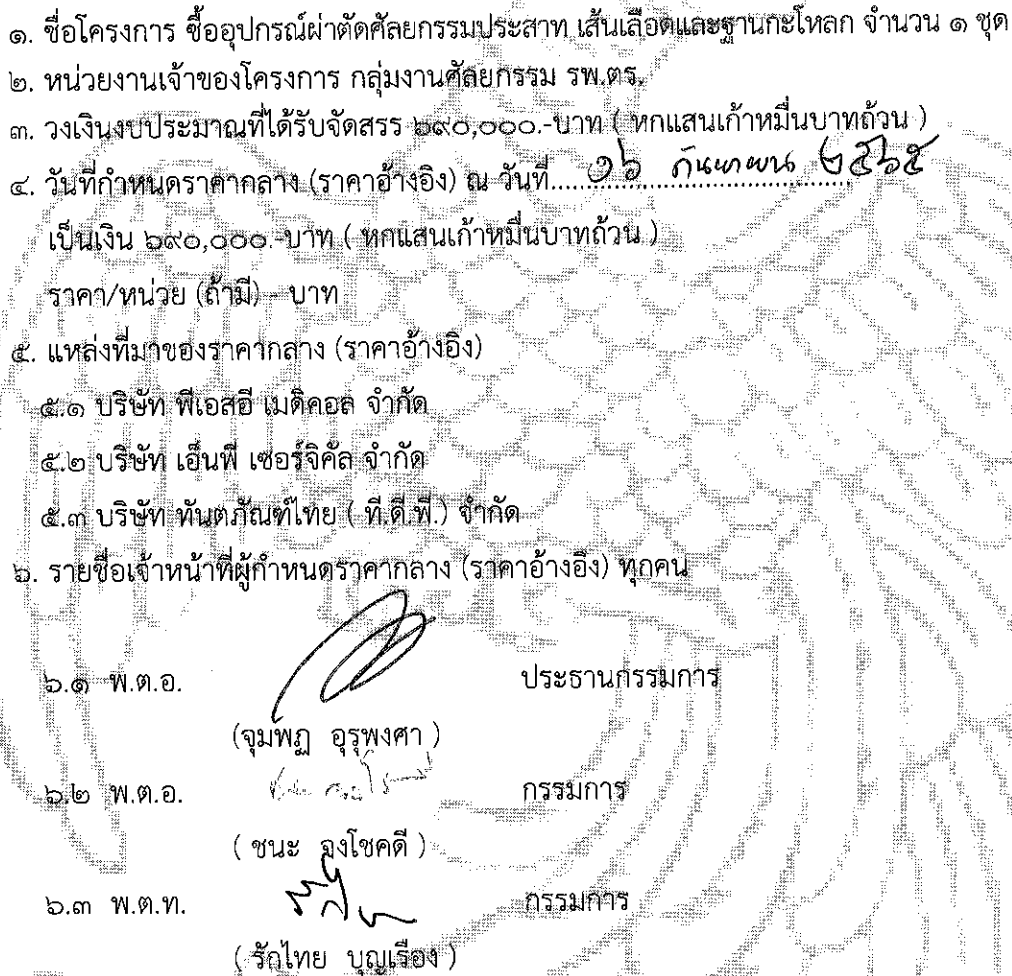 ๑. ชื่อโครงการ ซื้ออุปกรณ์ผ่าตัดศัลยกรรมประสาท เส้นเลือดและฐานกะโหลก จำนวน ๑ ชุด
๒. หน่วยงานเจ้าของโครงการ กลุ่มงานศัลยกรรม รพ.ตร.
๓. วงเงินงบประมาณที่ได้รับจัดสรร ๖๙๐,๐๐๐.-บาท ( หกแสนเก้าหมื่นบาทถ้วน )
๔. วันที่กำหนดราคากลาง (ราคาอ้างอิง) ณ วันที่.... ๑๖ กันยายน ๒๕๖๕
เป็นเงิน ๖๙๐,๐๐๐.-บาท ( หกแสนเก้าหมื่นบาทถ้วน )
ราคา/หน่วย (ถ้ามี) - บาท
๕. แหล่งที่มาของราคากลาง (ราคาอ้างอิง)
๕.๑ บริษัท พีเอสอี เมดิคอล จำกัด
๕.๒ บริษัท เอ็นพี เซอร์จิคัล จำกัด
๕.๓ บริษัท ทันตภัณฑ์ไทย ( ที.ดี.พี.) จำกัด
๖. รายชื่อเจ้าหน้าที่ผู้กำหนดราคากลาง (ราคาอ้างอิง) ทุกคน
๖.๑ พ.ต.อ. ประธานกรรมการ
(จุมพฏ อุรุพงศา )
๖.๒ พ.ต.อ. กรรมการ
( ชนะ จงโชคดี )
๖.๓ พ.ต.ท. กรรมการ
( รักไทย บุญเรือง )